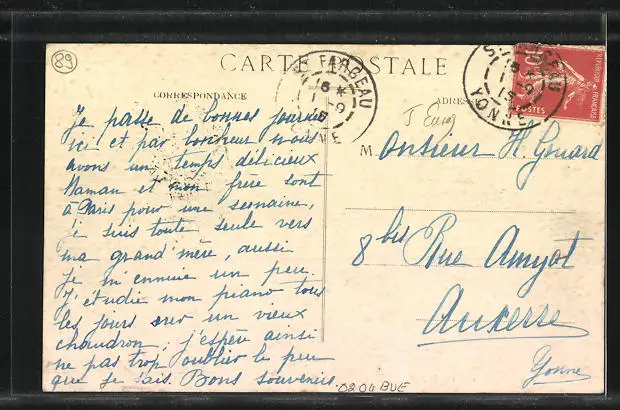 89
CARTE POSTALE
ST FARGEAU
YONNE
ST FARGEAU
YONNE
POSTES
CORRESPONDANCE
ADRESSE
Je passe de bonnes journées
ici et par bonheur nous
avons un temps délicieux
Maman et mon frère sont
à Paris pour une semaine,
je suis toute seule vers
ma grand'mère, aussi
je m'ennuie un peu.
J'étudie mon piano tous
les jours sur un vieux
chaudron, j'espère ainsi
ne pas trop oublier le peu
que je sais. Bons souvenirs.
Monsieur H. Gouard
8 bis Rue Amyot
Auxerre
Yonne
0204 BUE